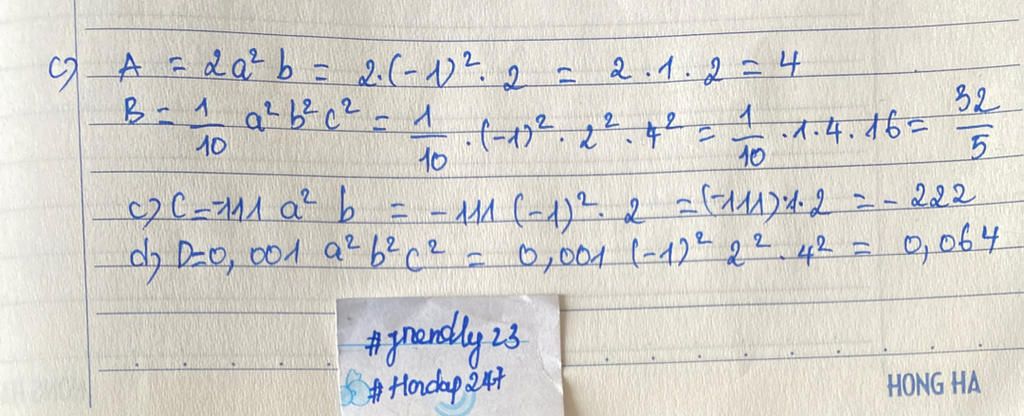 c) A = 2a² b = 2.(-1)² . 2 = 2 . 1 . 2 = 4
B = 1/10 a² b² c² = 1/10 . (-1)² . 2² . 4² = 1/10 . 1 . 4 . 16 = 32/5
c) C = -111 a² b = -111 (-1)² . 2 = (-111) . 1 . 2 = - 222
d) D = 0,001 a² b² c² = 0,001 (-1)² 2² . 4² = 0,064
#friendly23
#Hoidap247
HONG HA